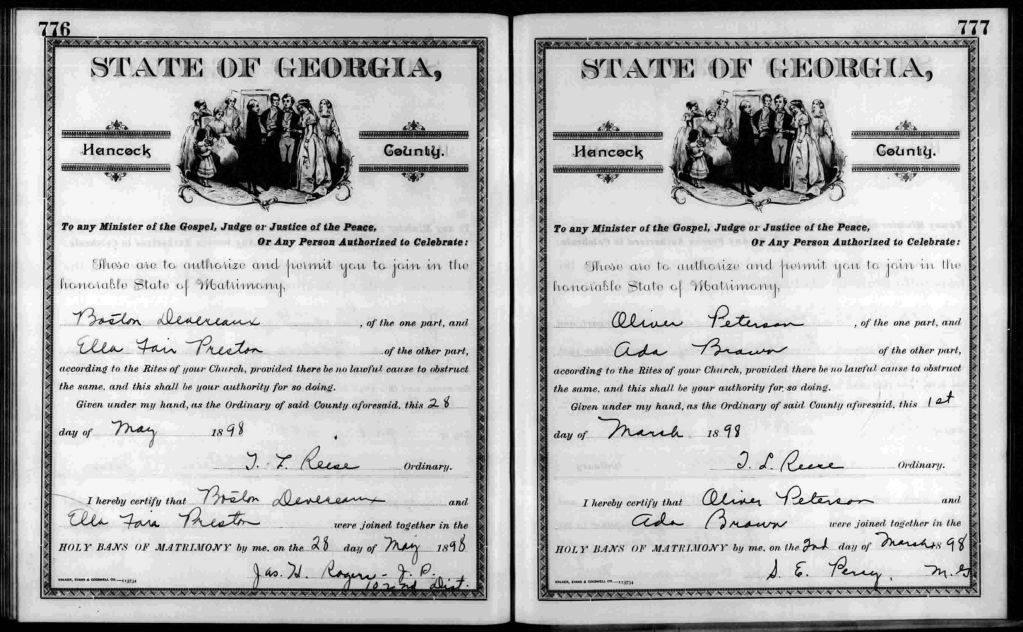 776
STATE OF GEORGIA,
Hancock County.
To any Minister of the Gospel, Judge or Justice of the Peace,
Or Any Person Authorized to Celebrate:
These are to authorize and permit you to join in the
honorable State of Matrimony,
Boston Devereaux, of the one part, and
Ella Fair Preston of the other part,
according to the Rites of your Church, provided there be no lawful cause to obstruct
the same, and this shall be your authority for so doing.
Given under my hand, as the Ordinary of said County aforesaid, this 28
day of May 1898
T. L. Reese Ordinary.
I hereby certify that Boston Devereaux and
Ella Fair Preston were joined together in the
HOLY BANS OF MATRIMONY by me, on the 28 day of May 1898
Jas. H. Rogers - J. P.
102nd Dist.
777
STATE OF GEORGIA,
Hancock County.
To any Minister of the Gospel, Judge or Justice of the Peace,
Or Any Person Authorized to Celebrate:
These are to authorize and permit you to join in the
honorable State of Matrimony,
Oliver Peterson, of the one part, and
Ada Brown of the other part,
according to the Rites of your Church, provided there be no lawful cause to obstruct
the same, and this shall be your authority for so doing.
Given under my hand, as the Ordinary of said County aforesaid, this 1st
day of March 1898
T. L. Reese Ordinary.
I hereby certify that Oliver Peterson and
Ada Brown were joined together in the
HOLY BANS OF MATRIMONY by me, on the 2nd day of March 1898
S. E. Percy, M.G.